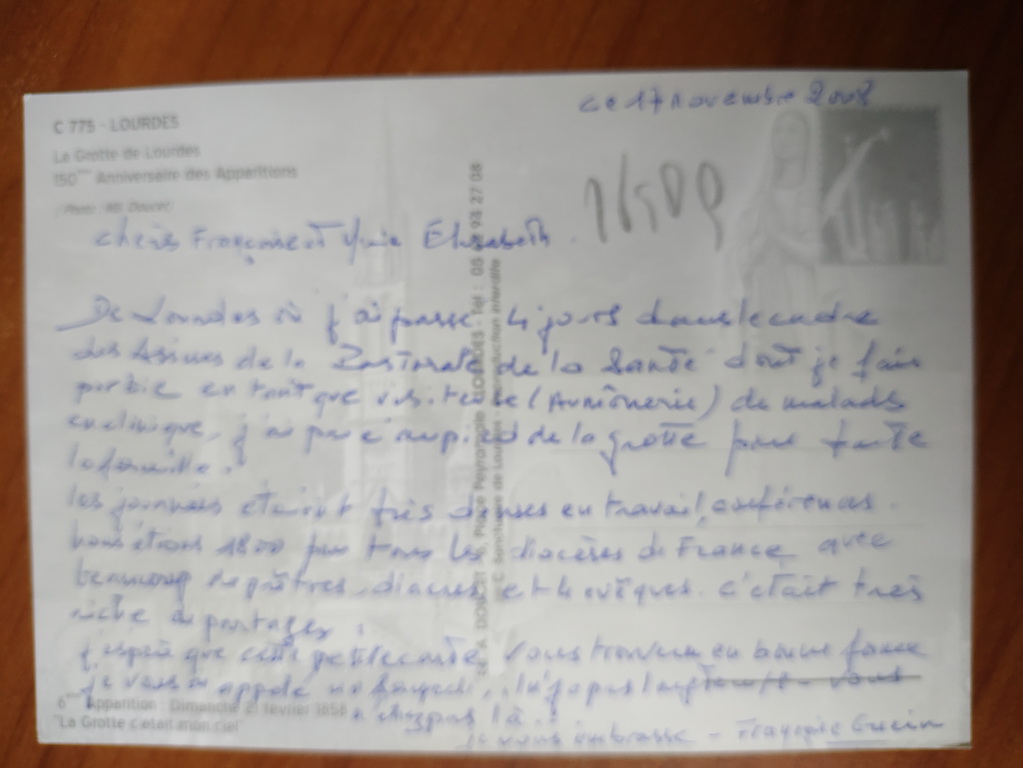 ce 17 novembre 2008
C 775 - LOURDES
La Grotte de Lourdes
150ème Anniversaire des Apparitions
(Photo : MF. Doucet)
chères Françoise et Marie Elisabeth.
De Lourdes où j'ai passé 4 jours dans le cadre
des Assises de la Pastorale de la Santé dont je fais
partie en tant que visiteuse (Aumônerie) de malades
en clinique, j'ai prié au pied de la grotte pour toute
la famille.
les journées étaient très denses en travail, conférences.
nous étions 1800 pour tous les diocèses de France avec
beaucoup de prêtres, diacres et évêques. c'était très
riche de partages.
j'espère que cette petite carte vous trouvera en bonne forme
je vous ai appelé
vous
n'étiez pas là.
je vous embrasse - Françoise
6ème Apparition : Dimanche 21 février 1858
"La Grotte c'était mon ciel"
A. DOUCET
Place Peyramale LOURDES - Tél : 05
94 27 08
Sanctuaire de Lourdes - Reproduction interdite